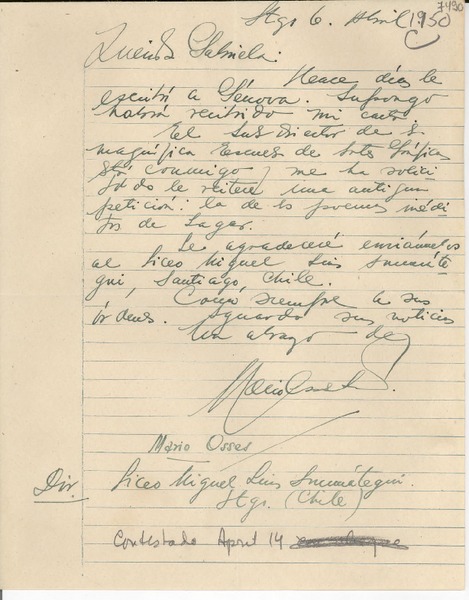 7490
Stgo 6. Abril (1950)
Querida Gabriela:
Hace días le
escribí a Génova. Supongo
habrá recibido mi carta.
El Sub director de la
magnífica Escuela de Artes Gráficas
está conmigo y me ha solici
tado le reitere una antigua
petición: la de los poemas inédi
tos de Lagar.
Le agradeceré enviármelos
al Liceo Miguel Luis Amunáte
gui, Santiago, Chile.
Como siempre a sus
órdenes. Aguardo sus noticias
Un abrazo de
Mario Osses
Mario Osses
Dir. Liceo Miguel Luis Amunátegui.
Stgo. (Chile)
Contestado April 14